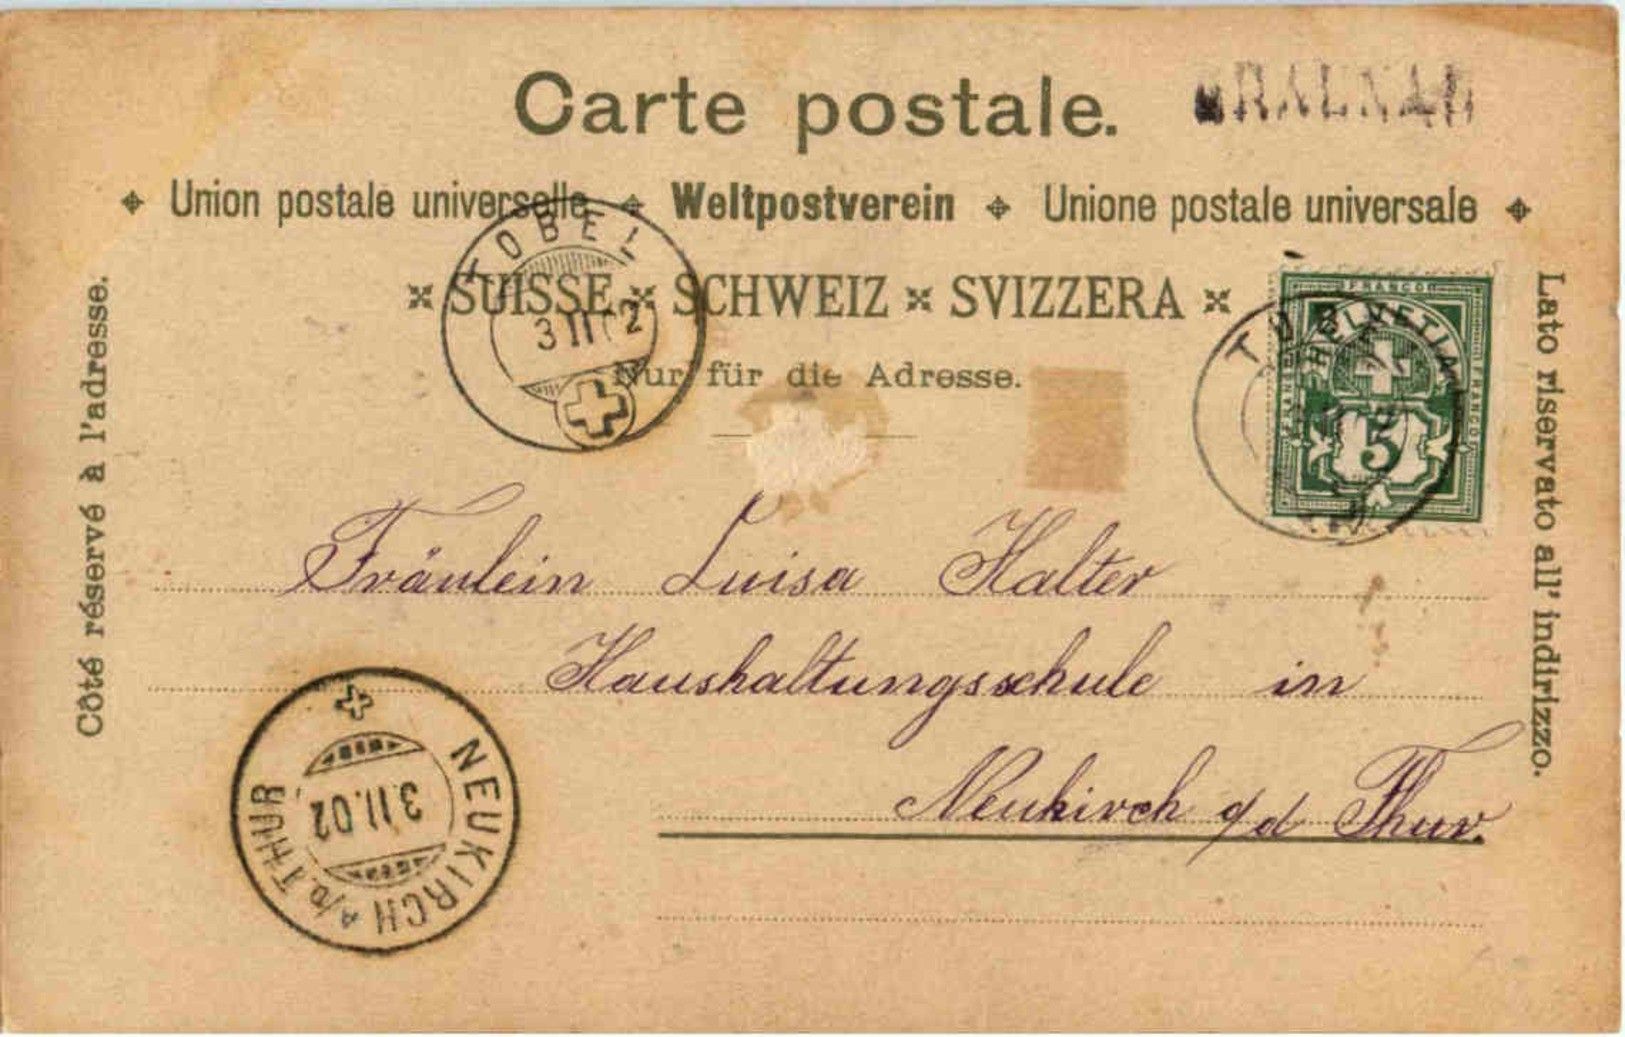 Carte postale.
BRAUNAU
Union postale universelle Weltpostverein Unione postale universale
SUISSE SCHWEIZ SVIZZERA
Nur für die Adresse.
Côté réservé à l'adresse.
Lato riservato all' indirizzo.
TOBEL
3 II 02
FRANCO
HELVETIA
FRANCO
5
Fräulein Luisa Halter
Haushaltungsschule in
Neukirch a/d Thur.
NEUKIRCH a/D. THUR
3.II.02